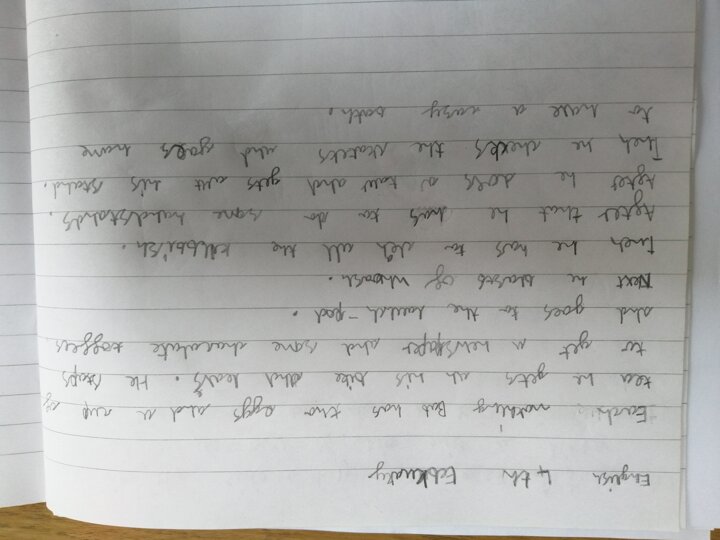 English 4th February
Each morning Bob has two eggs and a cup of
tea he gets on his bike and leavs. He stops
to get a newspaper and some chocolate toffees
and goes to the launch-pad.
Next he blasts of whoosh.
Then he has to all the rubbish.
After that he has to do some handstands.
After he does a and gets out his stand.
Then he checks the and goes home
to have a bath.